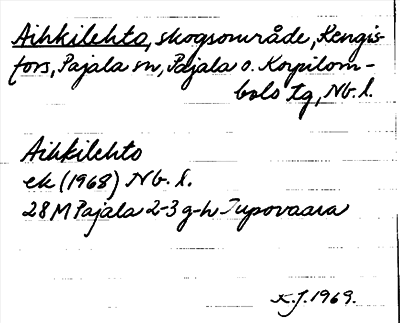 Aihkilehto, skogsområde, Kengis-
fors, Pajala sn, Pajala o. Korpilom-
bolo tg, Nb. l.
Aihkilehto
ek (1968) Nb. l.
28 M Pajala 2-3 g-h Jupovaara
K.J. 1969.